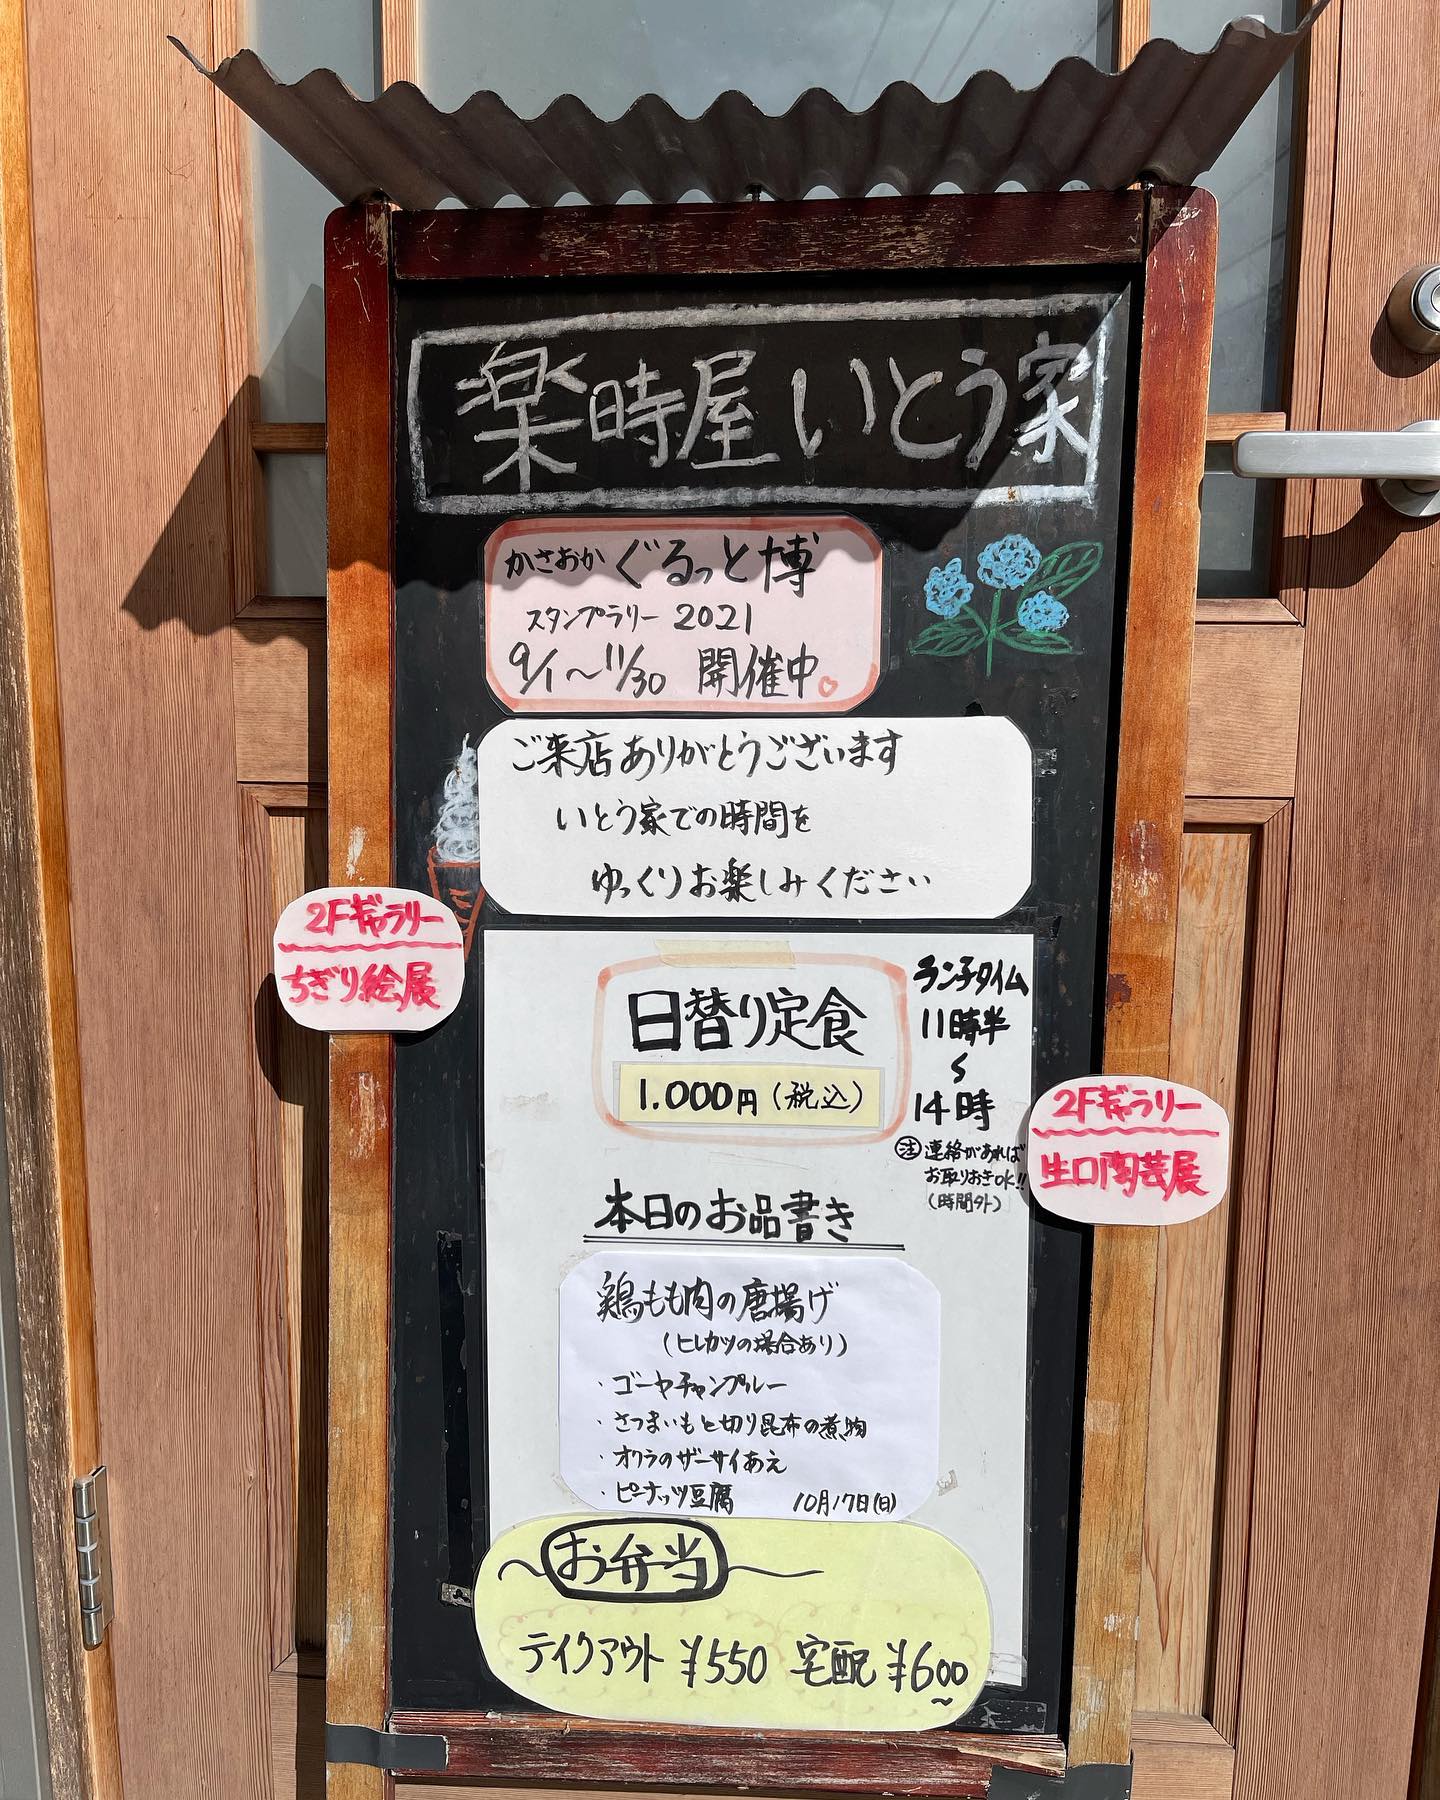 楽時屋 いとう家
かさおか ぐるっと博
スタンプラリー 2021
9/1〜11/30 開催中。
ご来店ありがとうございます
いとう家での時間を
ゆっくりお楽しみください
2Fギャラリー
ちぎり絵展
日替り定食
1.000円(税込)
ランチタイム
11時半
〜
14時
㊟連絡があれば
お取りおきOK!!
(時間外)
2Fギャラリー
生口陶芸展
本日のお品書き
鶏もも肉の唐揚げ
(ヒレカツの場合あり)
・ゴーヤチャンプルー
・さつまいもと切り昆布の煮物
・オクラのザーサイあえ
・ピーナッツ豆腐 10月17日(日)
〜お弁当〜
テイクアウト ¥550 宅配 ¥600〜